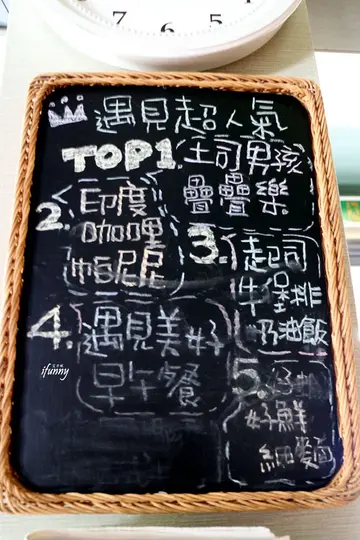 7 6 5
遇見超人氣
TOP1. 土司男孩
疊疊樂
2. 印度
咖哩
帕尼尼
3. 起司
牛堡排
奶油飯
4. 遇見美好
早午餐
5.
好鮮
細麵
ifunny